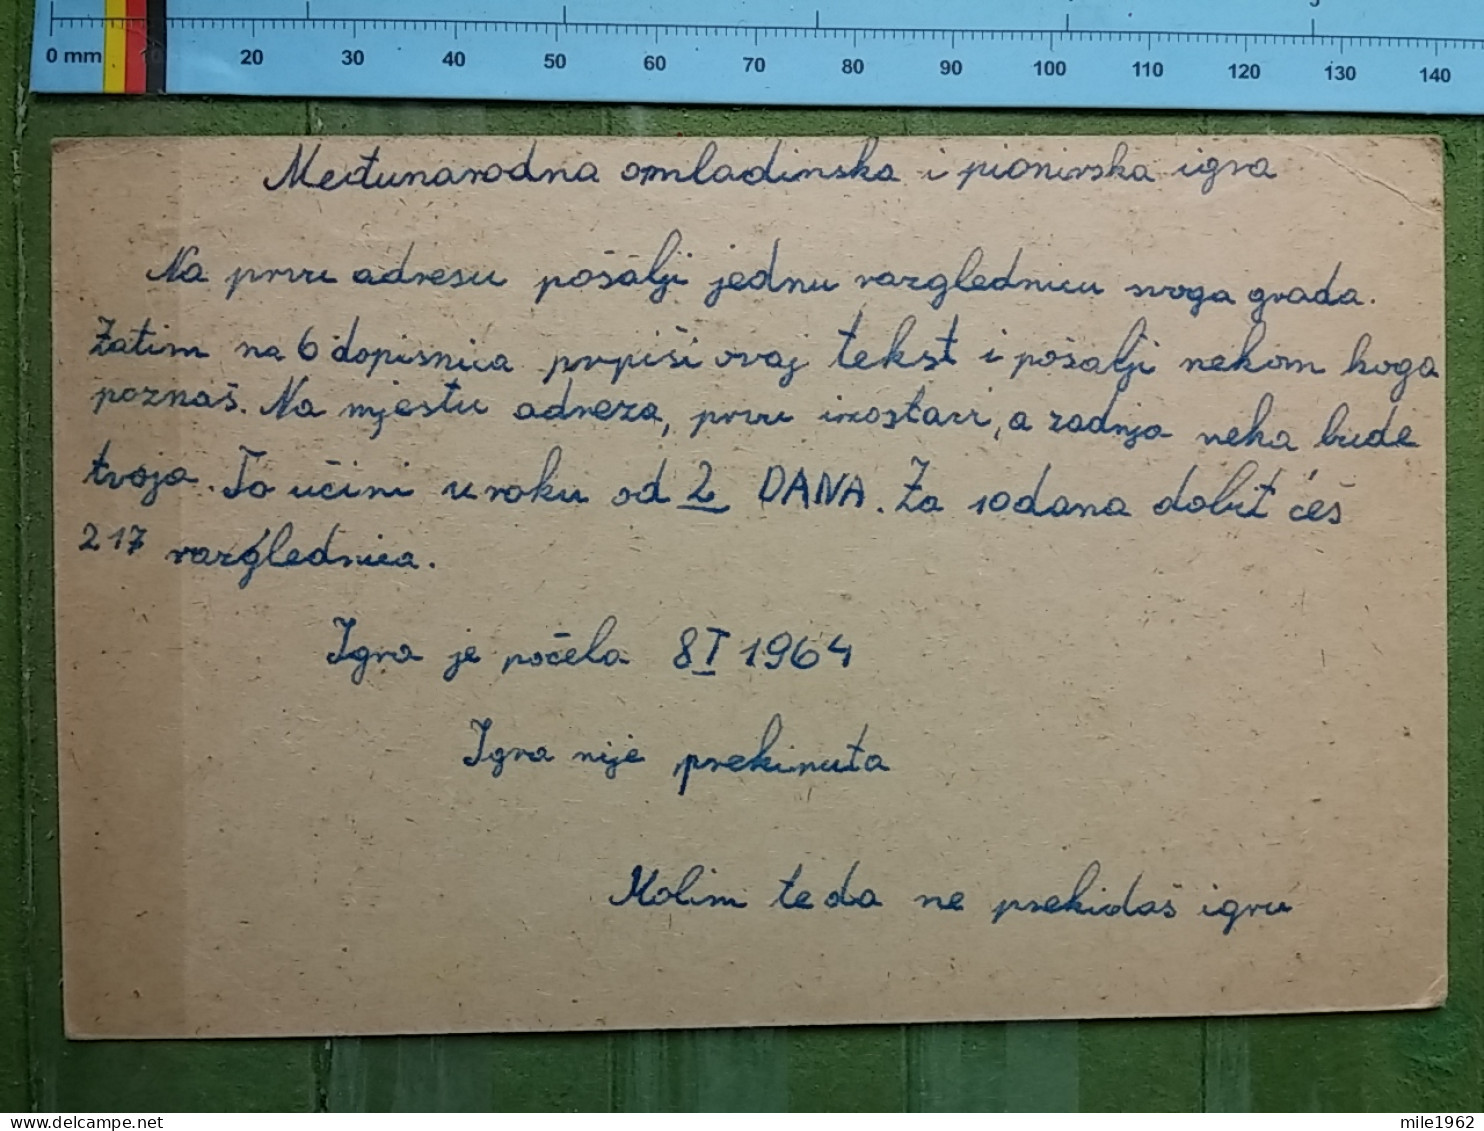 0 mm 10 20 30 40 50 60 70 80 90 100 110 120 130 140
Međunarodna omladinska i pionirska igra
Na prvu adresu pošalji jednu razglednicu svoga grada.
Zatim na 6 dopisnica prepiši ovaj tekst i pošalji nekom koga
poznaš. Na mjestu adreza, prvu izostavi, a zadnja neka bude
tvoja. To učini u roku od 2 DANA. Za 10 dana dobit ćeš
217 razglednica.
Igra je počela 8 I 1964
Igra nije prekinuta
Molim te da ne prekidaš igru
mile1962